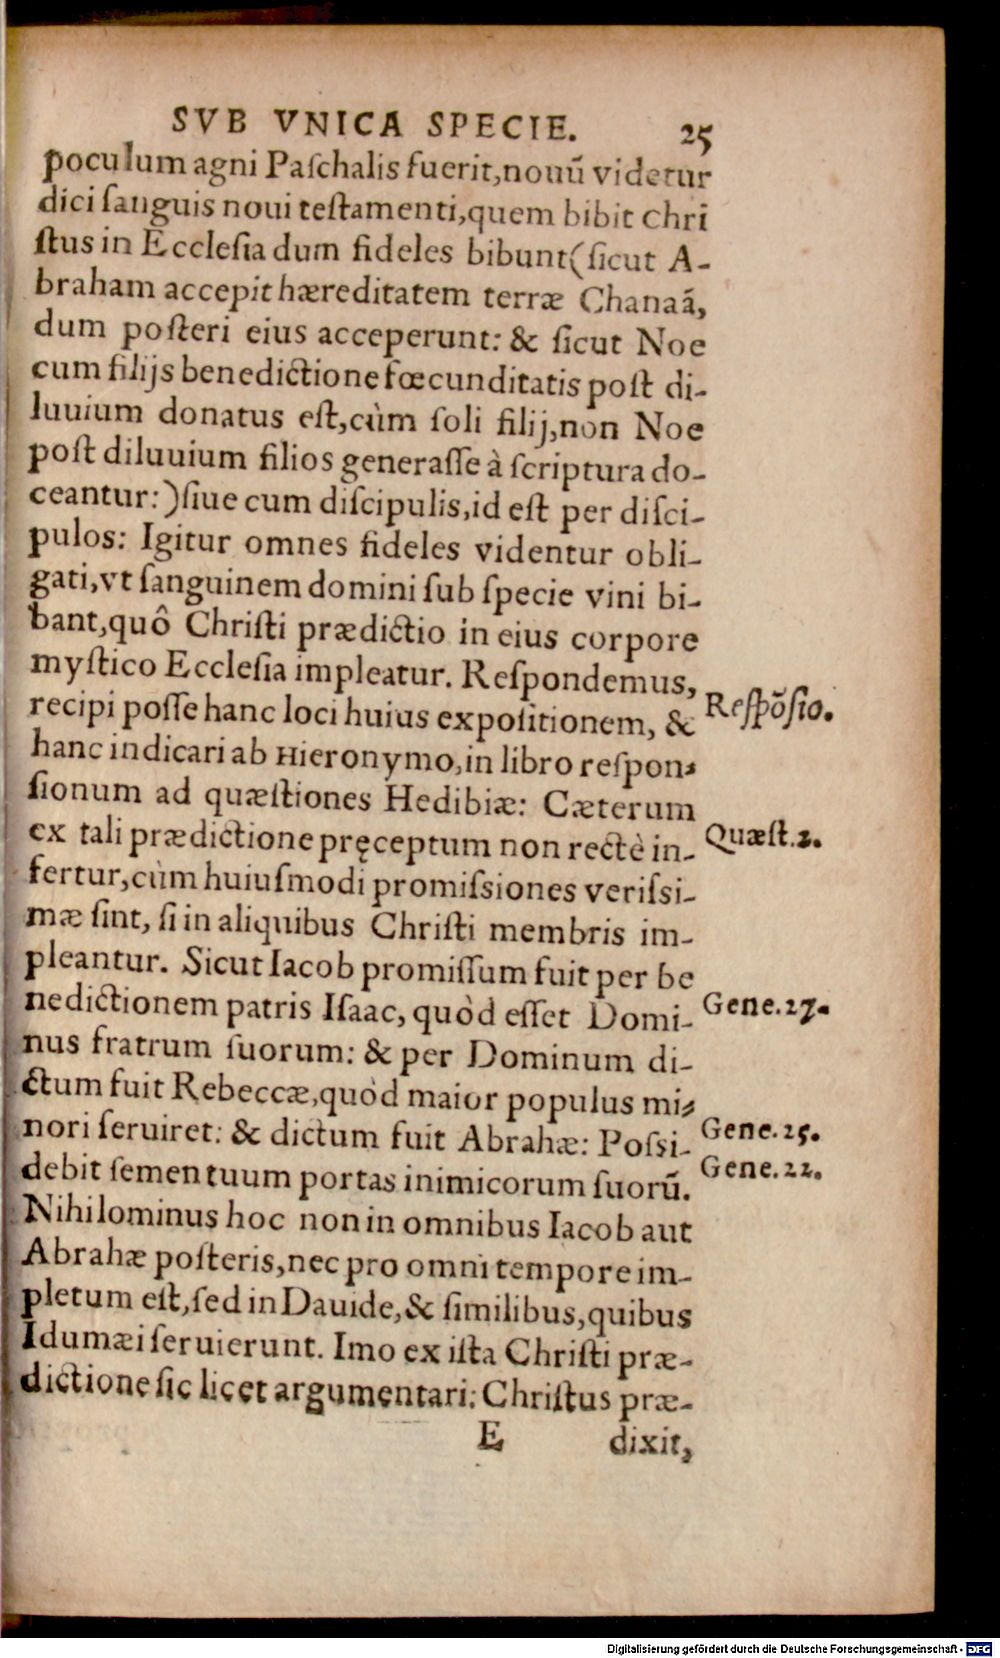 SVB VNICA SPECIE. 25
poculum agni Paſchalis fuerit,nouū videtur
dici ſanguis noui teſtamenti,quem bibit Chri
ſtus in Eccleſia dum fideles bibunt(ſicut A-
braham accepit hæreditatem terræ Chanaā,
dum poſteri eius acceperunt: & ſicut Noe
cum filijs benedictione fœcunditatis poſt di-
luuium donatus eſt,cùm ſoli filij,non Noe
poſt diluuium filios generaſſe à ſcriptura do-
ceantur:)ſiue cum diſcipulis,id eſt per diſci-
pulos: Igitur omnes fideles videntur obli-
gati,vt ſanguinem domini ſub ſpecie vini bi-
bant,quô Chriſti prædictio in eius corpore
myſtico Eccleſia impleatur. Reſpondemus,
recipi poſſe hanc loci huius expoſitionem, &
Reſpõſio.
hanc indicari ab Hieronymo,in libro reſpon-
ſionum ad quæſtiones Hedibiæ: Cæterum
ex tali prædictione pręceptum non rectè in-
Quæſt.2.
fertur,cùm huiuſmodi promiſsiones veriſsi-
mæ ſint, ſi in aliquibus Chriſti membris im-
pleantur. Sicut Iacob promiſſum fuit per be
nedictionem patris Iſaac, quòd eſſet Domi-
Gene.27.
nus fratrum ſuorum: & per Dominum di-
ctum fuit Rebeccæ,quòd maior populus mi-
nori ſeruiret: & dictum fuit Abrahæ: Poſsi-
Gene.25.
debit ſemen tuum portas inimicorum ſuorũ.
Gene.22.
Nihilominus hoc non in omnibus Iacob aut
Abrahæ poſteris,nec pro omni tempore im-
pletum eſt,ſed in Dauide,& ſimilibus,quibus
Idumæi ſeruierunt. Imo ex iſta Chriſti præ-
dictione ſic licet argumentari: Chriſtus præ-
E dixit,
Digitalisierung gefördert durch die Deutsche Forschungsgemeinschaft - DFG